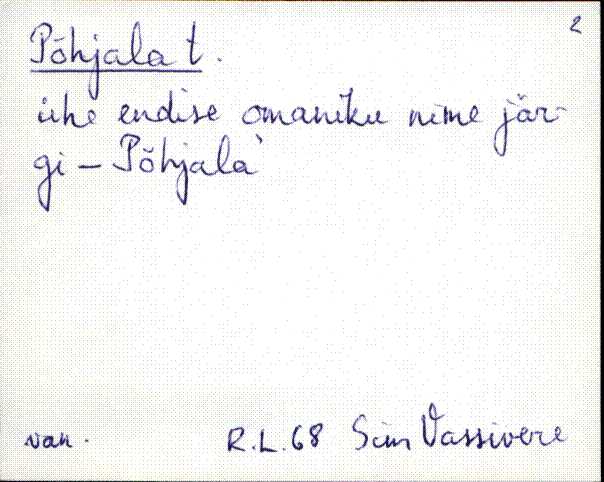 2
Põhjala t.
ühe endise omaniku nime jär-
gi – Põhjala
van.
R.L.68 Siim Vassivere